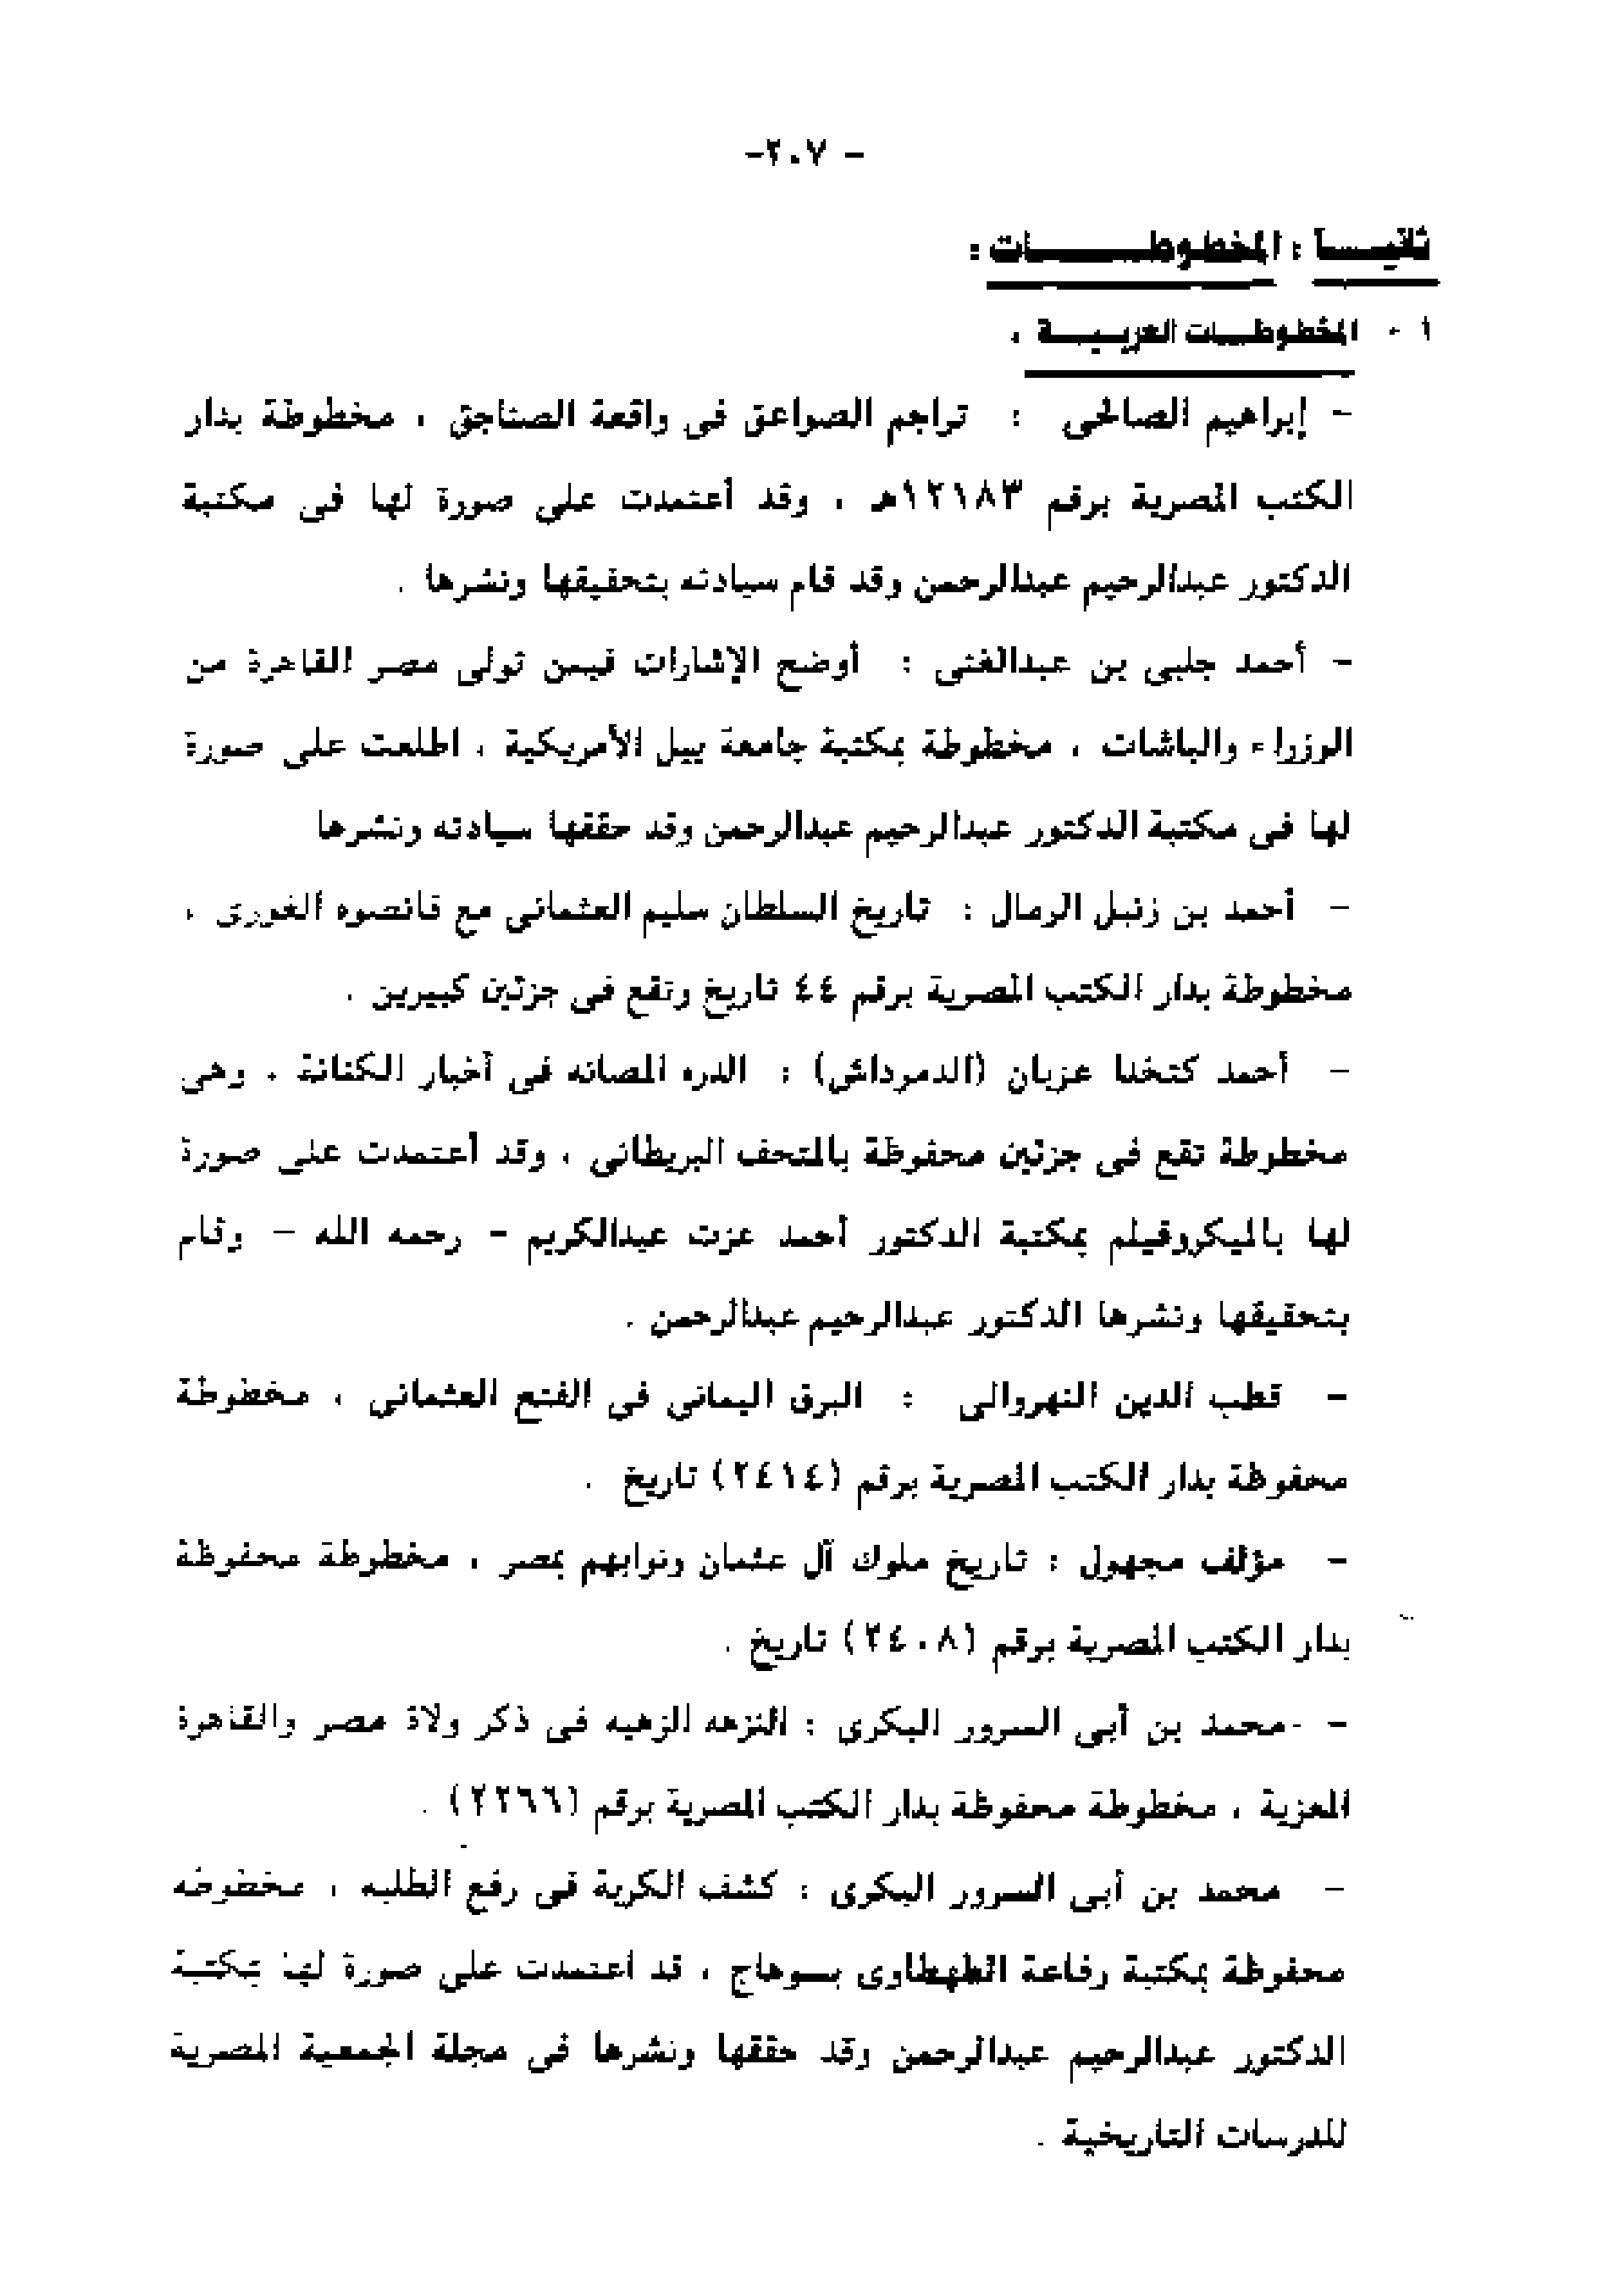 - ٢٠٧-
ثانيـــا : المخطوطـــــــات :
١ - المخطوطـــات العربيـــة .
- إبراهيم الصالحى : تراجم الصواعق فى واقعة الصناجق ، مخطوطة بدار
الكتب المصرية برقم ١٢١٨٣هـ ، وقد أعتمدت على صورة لها فى مكتبة
الدكتور عبدالرحيم عبدالرحمن وقد قام سيادته بتحقيقها ونشرها .
- أحمد جلبى بن عبدالغنى : أوضح الإشارات فيمن تولى مصر القاهرة من
الوزراء والباشات ، مخطوطة بمكتبة جامعة ييل الأمريكية ، اطلعت على صورة
لها فى مكتبة الدكتور عبدالرحيم عبدالرحمن وقد حققها سيادته ونشرها
- أحمد بن زنبل الرمال : تاريخ السلطان سليم العثمانى مع قانصوه الغورى ،
مخطوطة بدار الكتب المصرية برقم ٤٤ تاريخ وتقع فى جزئين كبيرين .
- أحمد كتخدا عزبان (الدمرداش) : الدره المصانه فى أخبار الكنانة . وهى
مخطوطة تقع فى جزئين محفوظة بالمتحف البريطانى ، وقد أعتمدت على صورة
لها بالميكروفيلم بمكتبة الدكتور أحمد عزت عبدالكريم - رحمه الله - وقام
بتحقيقها ونشرها الدكتور عبدالرحيم عبدالرحمن .
- قطب الدين النهروالى : البرق اليمانى فى الفتح العثمانى ، مخطوطة
محفوظة بدار الكتب المصرية برقم (٢٤١٤) تاريخ .
- مؤلف مجهول : تاريخ ملوك آل عثمان ونوابهم بمصر ، مخطوطة محفوظة
بدار الكتب المصرية برقم (٢٤٠٨) تاريخ .
- محمد بن أبى السرور البكرى : النزهه الزهيه فى ذكر ولاة مصر والقاهرة
المعزية ، مخطوطة محفوظة بدار الكتب المصرية برقم (٢٢٦٦) .
- محمد بن أبى السرور البكرى : كشف الكربة فى رفع الطلبه ، مخطوطه
محفوظة بمكتبة رفاعة الطهطاوى بسوهاج ، قد اعتمدت على صورة لها بمكتبة
الدكتور عبدالرحيم عبدالرحمن وقد حققها ونشرها فى مجلة الجمعية المصرية
للدرسات التاريخية .